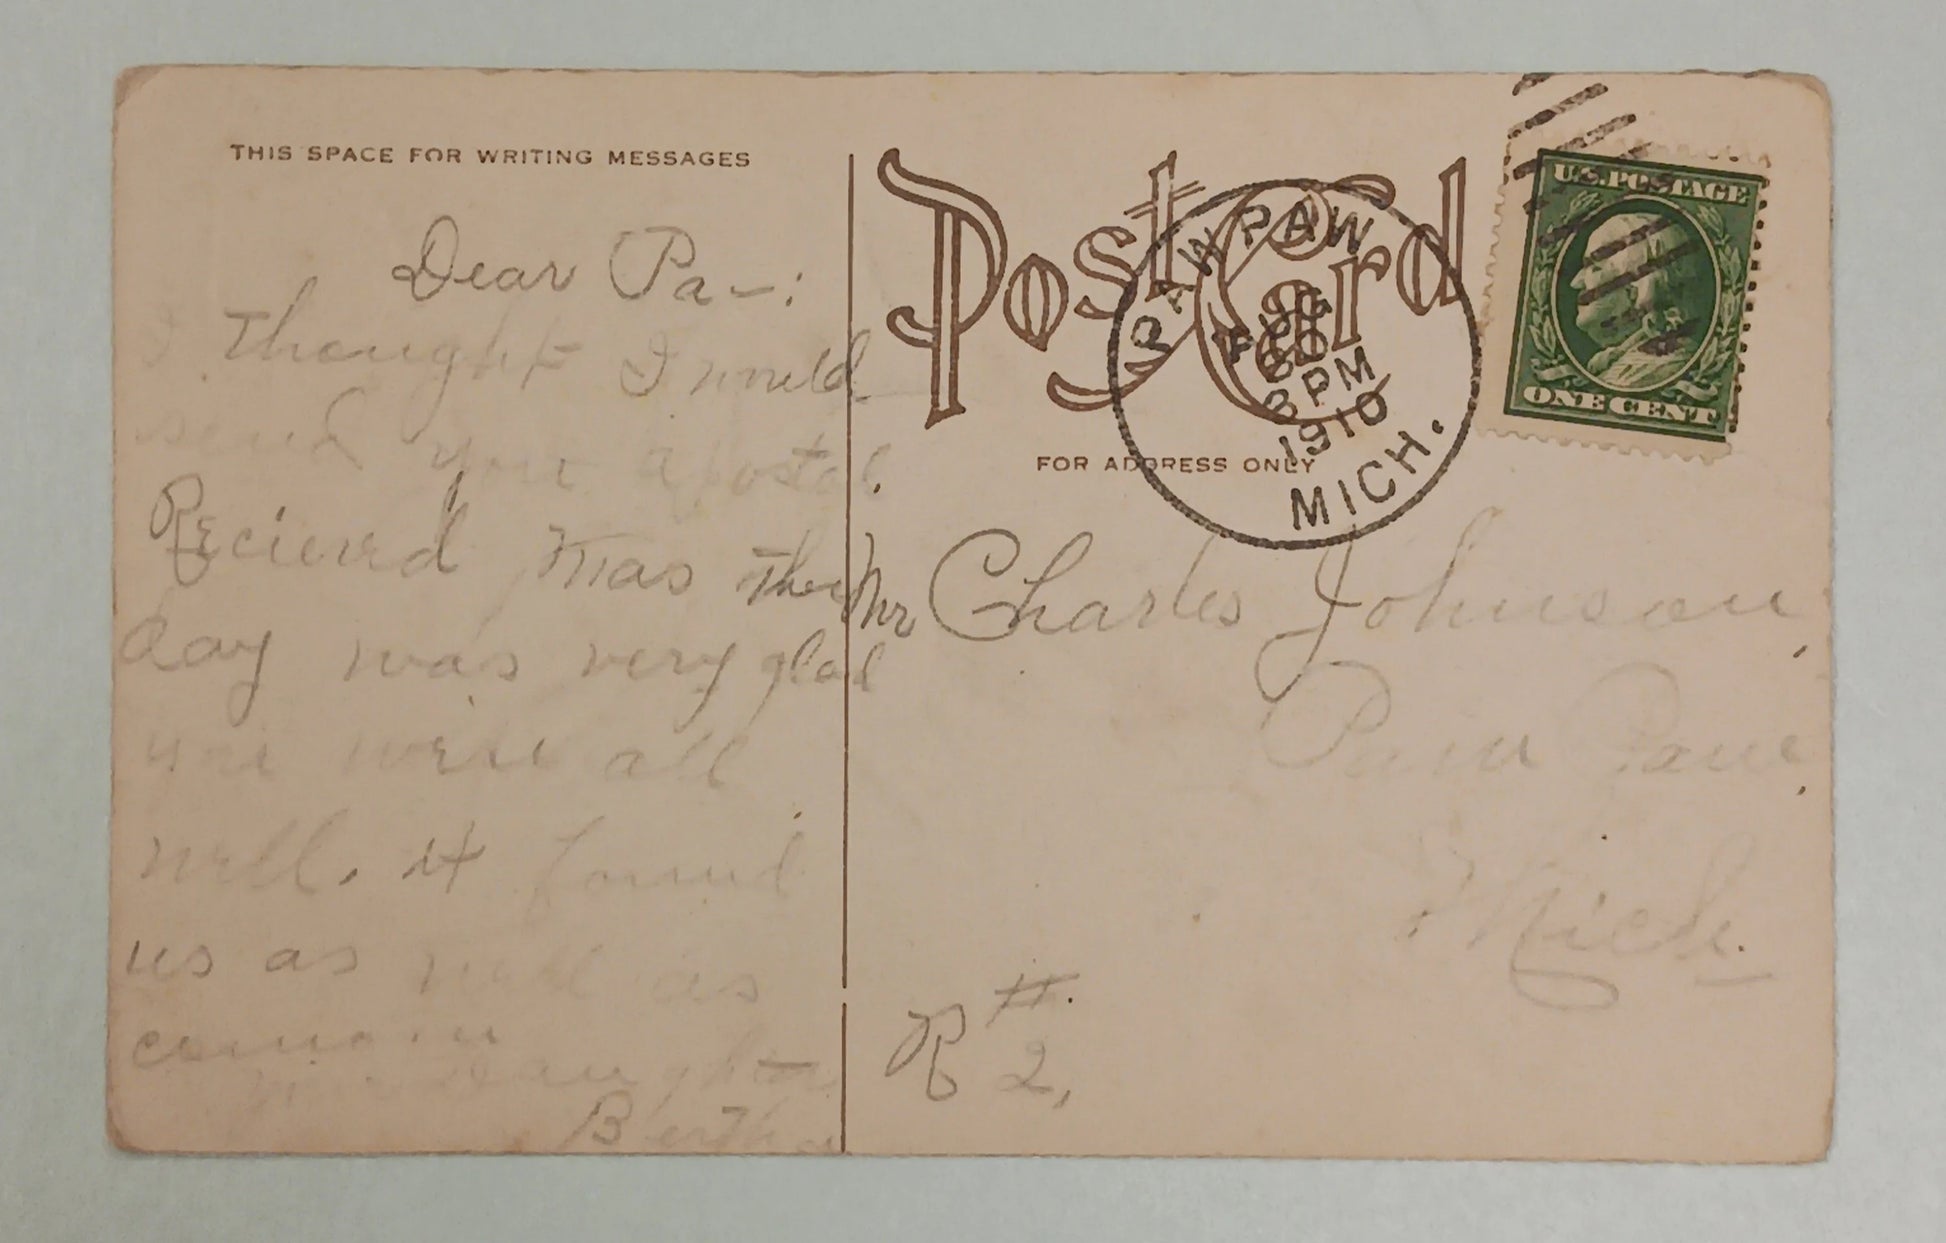 THIS SPACE FOR WRITING MESSAGES
Dear Pa-:
I thought I would
send you a postal.
Recieved Mas the
day was very glad
you were all
well. it found
us as well as
common
Daughter
Bertha
Post Card
PAW PAW
AUG
30
3 PM
1910
MICH.
U.S. POSTAGE
ONE CENT
FOR ADDRESS ONLY
Mr Charles Johnson,
Paw Paw,
Mich.
R #
2,